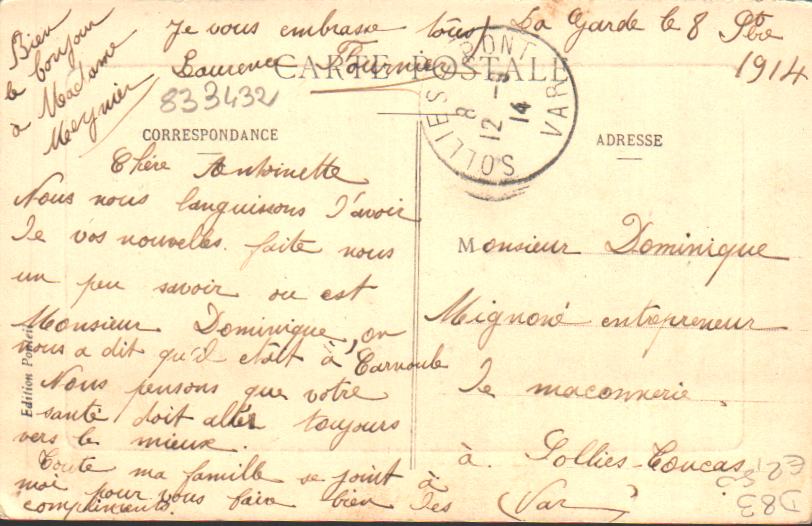 La Garde le 8 9bre
1914
CARTE POSTALE
CORRESPONDANCE
Chère Antoinette
Nous nous languissons d'avoir
de vos nouvelles. faite nous
un peu savoir ou est
Monsieur Dominique, on
nous a dit qu'il était à Carnoule
Nous pensons que votre
santé doit aller toujours
vers le mieux.
Toute ma famille se joint à
moi pour vous faire bien des
compliments.
Je vous embrasse tous
Laurence Fournier
Bien
le bonjour
à Madame
Meynier
833432
SOLLIES PONT
VAR
8
12 -
14
ADRESSE
Monsieur Dominique
Mignoné entrepreneur
de maconnerie.
à Sollies-Toucas
(Var)
D83
Edition